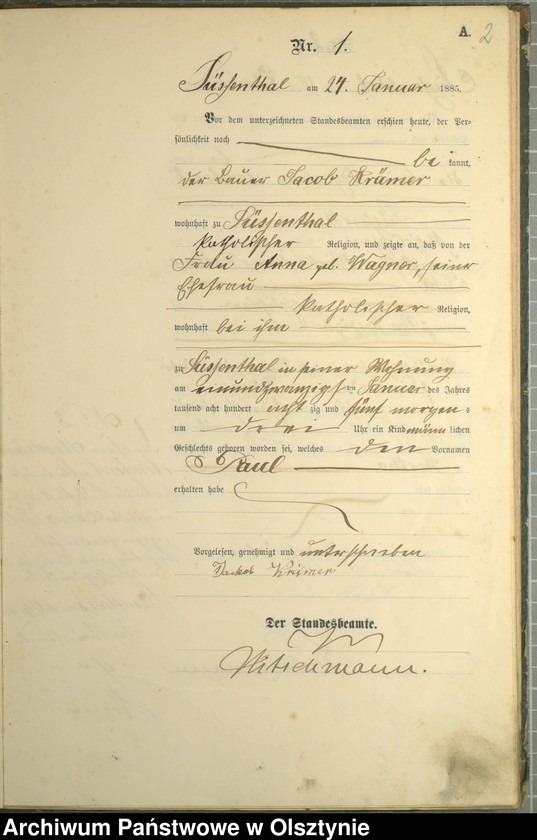 A. 2
Nr. 1.
Süssenthal am 24. Januar 1885.
Vor dem unterzeichneten Standesbeamten erschien heute, der Per-
sönlichkeit nach
be kannt,
der Bauer Jacob Krämer
wohnhaft zu Süssenthal
katholischer Religion, und zeigte an, daß von der
Frau Anna geb. Wagner, seiner
Ehefrau
katholischer Religion,
wohnhaft bei ihm
zu Süssenthal in seiner Wohnung
am einundzwanzigsten Januar des Jahres
tausend acht hundert acht zig und fünf morgens
um drei Uhr ein Kind männlichen
Geschlechts geboren worden sei, welches den Vornamen
Paul
erhalten habe
Vorgelesen, genehmigt und unterschrieben
Jackob Krämer
Der Standesbeamte.
Archiwum Państwowe w Olsztynie